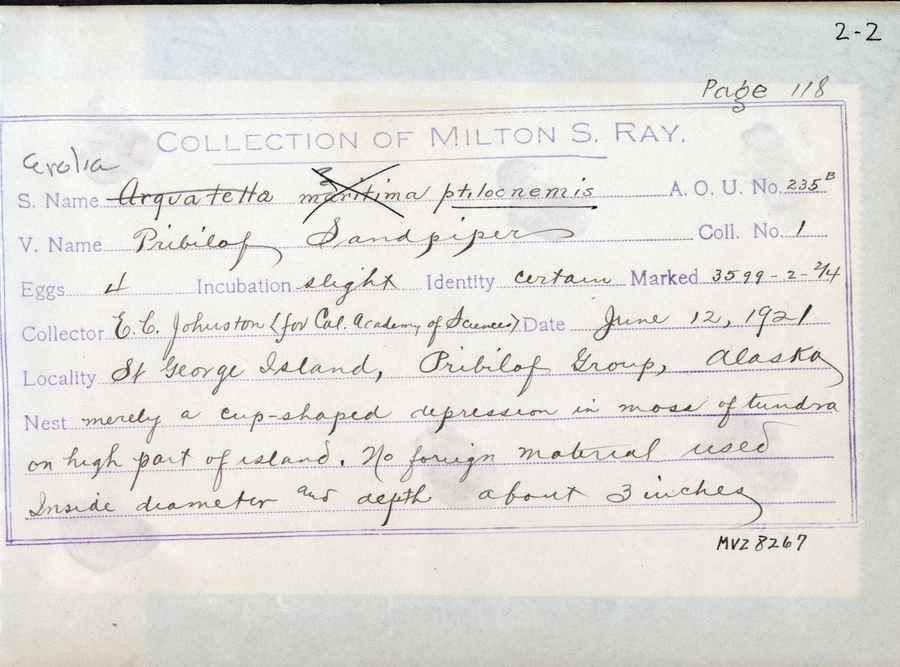 2-2
Page 118
COLLECTION OF MILTON S. RAY.
Erolia
S. Name Arquatella maritima ptilocnemis A. O. U. No. 235 B
V. Name Pribilof Sandpiper Coll. No. 1
Eggs 4 Incubation slight Identity certain Marked 3599-2-2/4
Collector E. C. Johnston (for Cal. Academy of Sciences) Date June 12, 1921
Locality St George Island, Pribilof Group, Alaska
Nest merely a cup-shaped depression in moss of tundra
on high part of island. No foreign material used
Inside diameter and depth about 3 inches
MVZ 8267